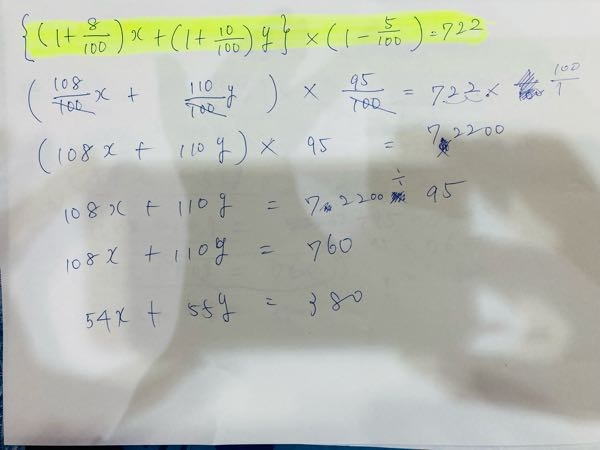 {(1+8/100)x+(1+10/100)y}×(1-5/100)=722
(108/100 x + 110/100 y) × 95/100 = 722 × 100/1
(108x + 110y) × 95 = 72200
108x + 110y = 72200 ÷ 95
108x + 110y = 760
54x + 55y = 380